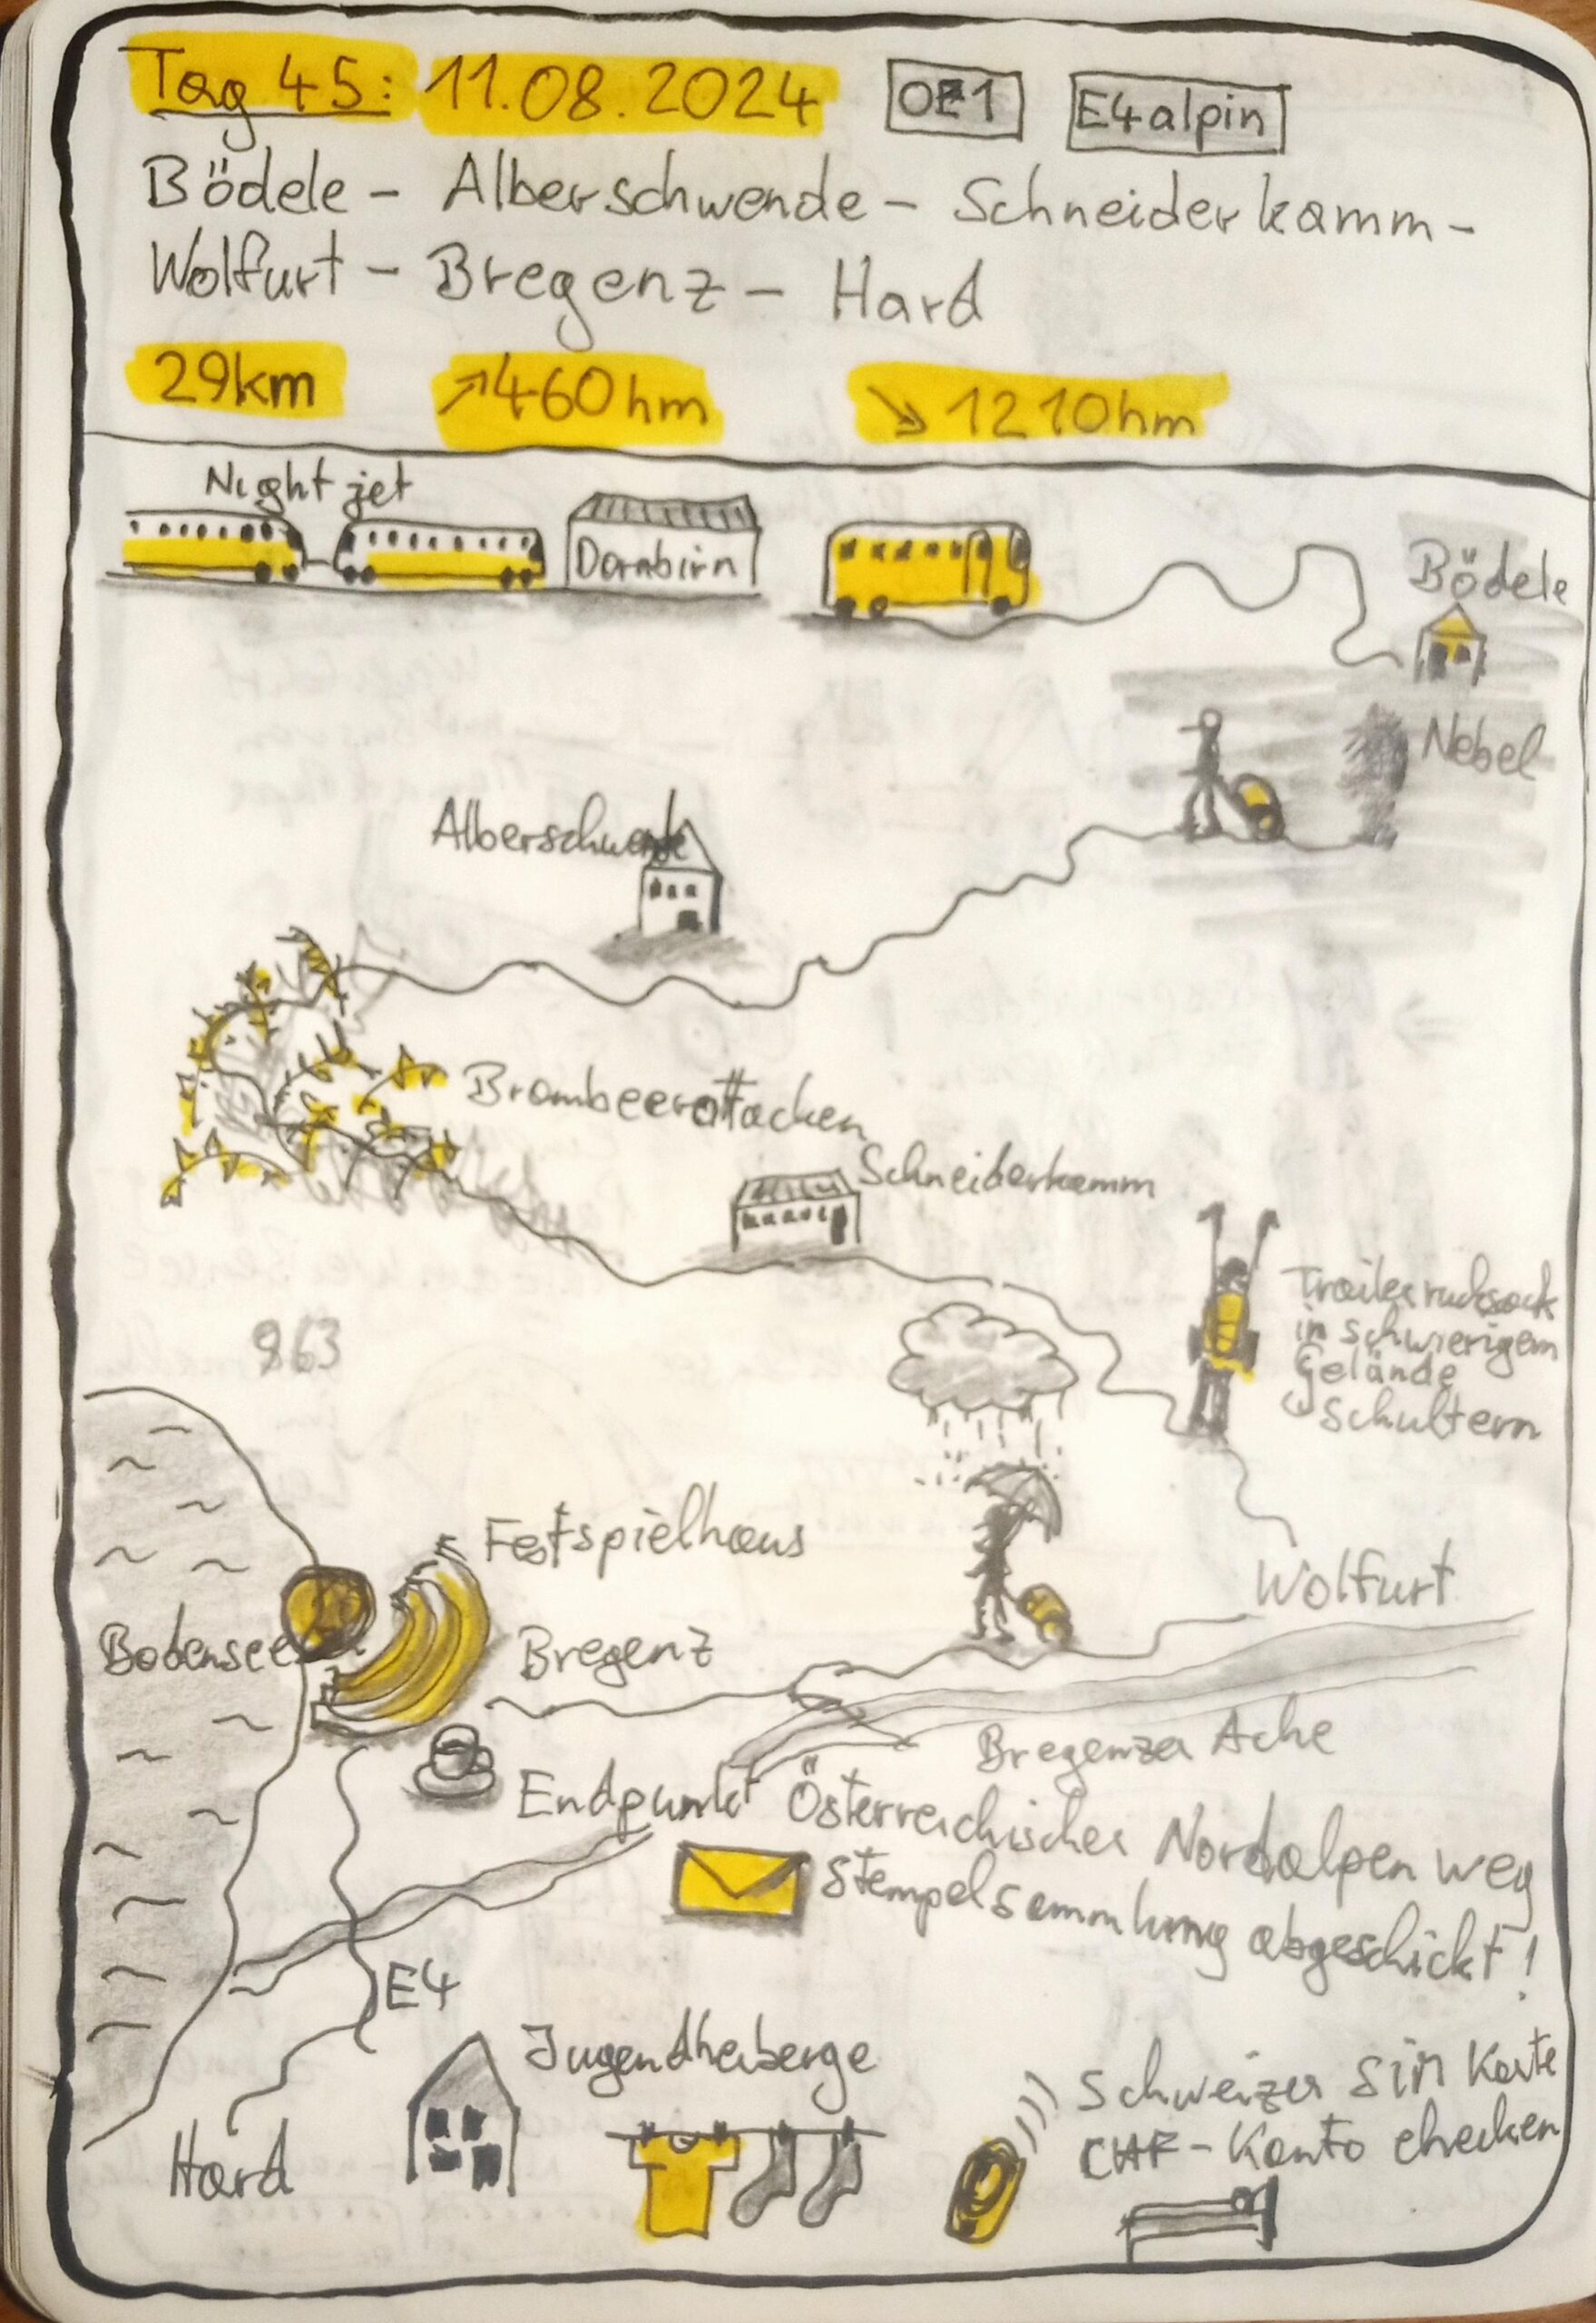 Tag 45: 11.08.2024 OE1 E4alpin
Bödele - Alberschwende - Schneiderkamm -
Wolfurt - Bregenz - Hard
29km ↗460hm ↘1210hm
Nightjet
Dornbirn
Bödele
Nebel
Alberschwende
Brombeerattacken
Schneiderkamm
Trailerrucksack
in schwierigem
Gelände
schultern
963
Festspielhaus
Wolfurt
Bodensee
Bregenz
Bregenzer Ache
Endpunkt Österreichischer Nordalpenweg
Stempelsammlung abgeschickt!
E4
Jugendherberge
Schweizer SIM Karte
CHF-Konto checken
Hard